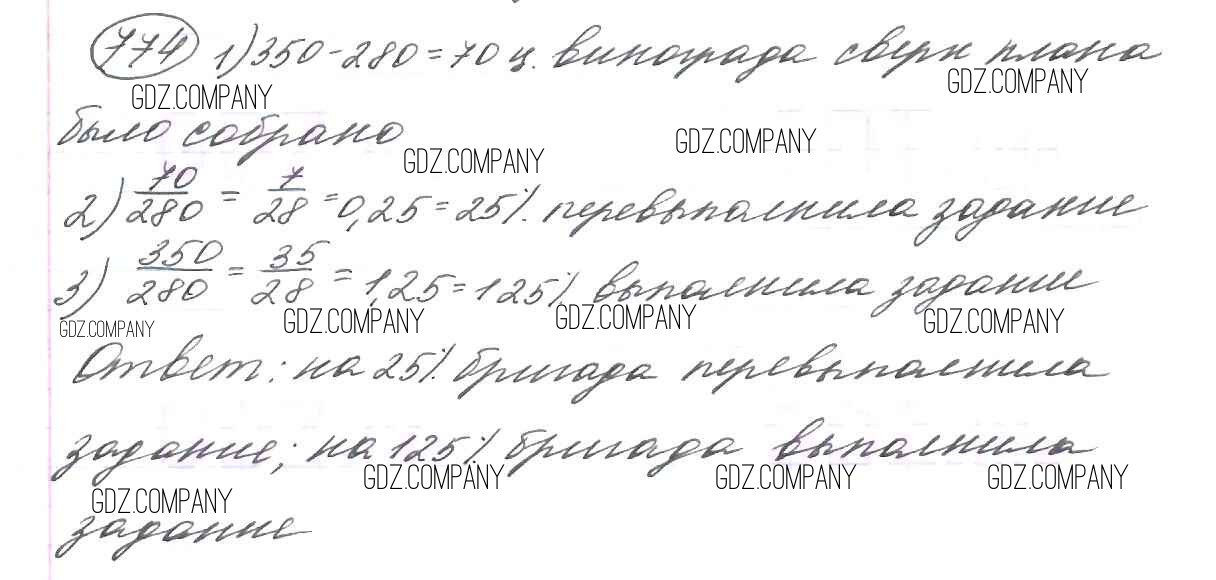 774 1) 350 - 280 = 70 ц. винограда сверх плана
GDZ.COMPANY GDZ.COMPANY
было собрано
GDZ.COMPANY GDZ.COMPANY
2) 70/280 = 7/28 = 0,25 = 25% перевыполнила задание
3) 350/280 = 35/28 = 1,25 = 125% выполнила задание
GDZ.COMPANY GDZ.COMPANY GDZ.COMPANY GDZ.COMPANY
Ответ: на 25% бригада перевыполнила
задание; на 125% бригада выполнила
GDZ.COMPANY GDZ.COMPANY GDZ.COMPANY GDZ.COMPANY
задание